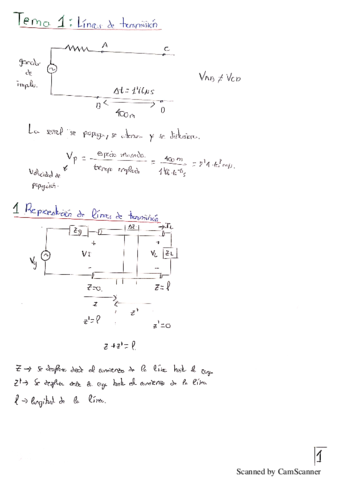 Tema 1: Líneas de transmisión
A C
generador
de
impulsos
VAB ≠ VCD
Δt = 1'4μs
B D
400m
La señal se propaga, se atenua y se distorsiona.
Vp = espacio recorrido / tiempo empleado = 400m
Velocidad de
propagación
1 Representación de líneas de transmisión
Zg Δz IL
+ +
Vg Vi VL ZL
- -
z=0 z=l
z z'
z'=l z'=0
z+z'=l
z → se desplaza desde el comienzo de la línea hasta la carga
z' → se desplaza desde la carga hasta el comienzo de la línea
l → longitud de la línea.
1
Scanned by CamScanner